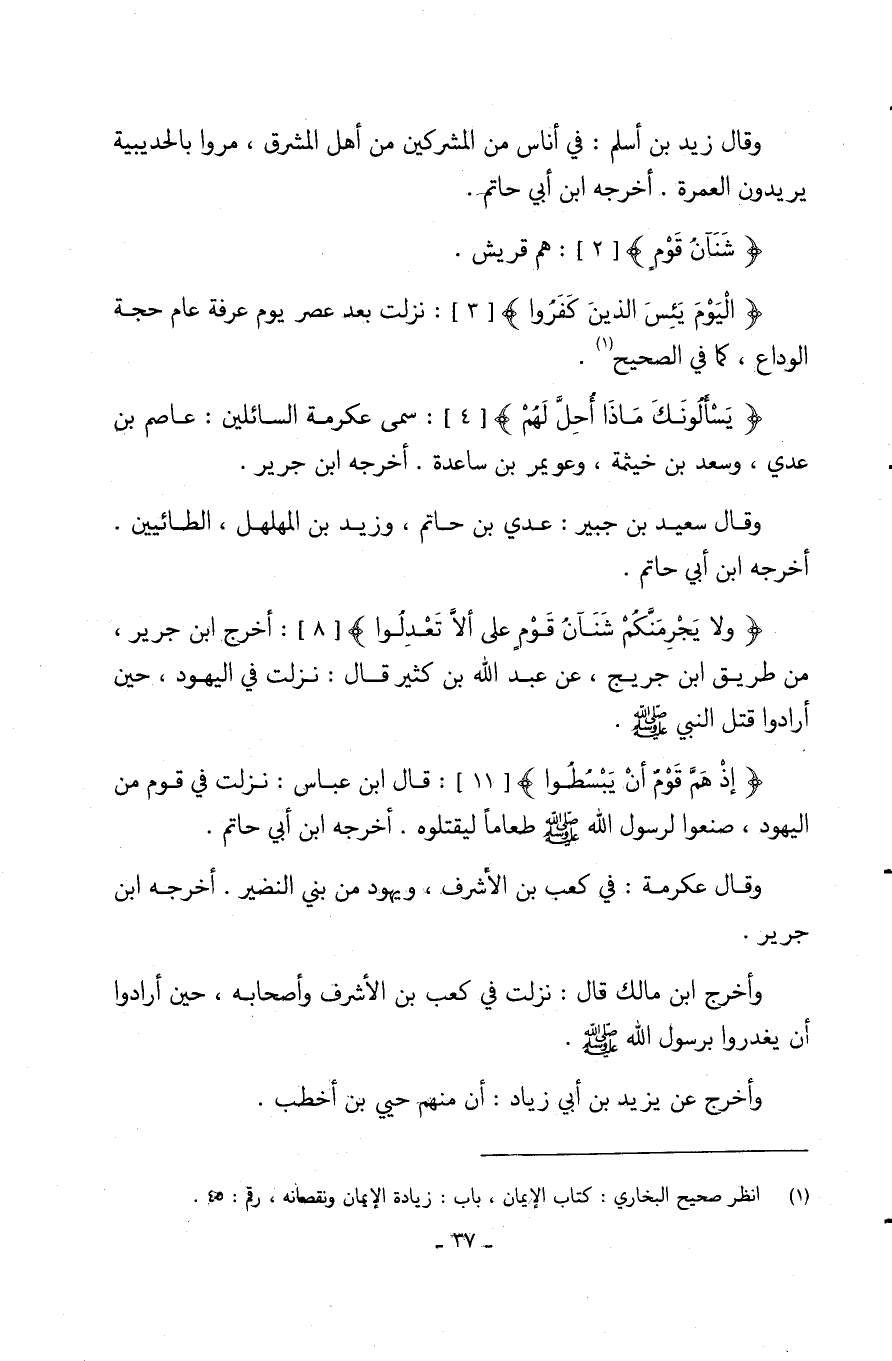 وقال زيد بن أسلم : في أناس من المشركين من أهل المشرق ، مروا بالحديبية
يريدون العمرة . أخرجه ابن أبي حاتم .
﴿ شَنَآنُ قَوْمٍ ﴾ [ ٢ ] : هم قريش .
﴿ الْيَوْمَ يَئِسَ الذينَ كَفَرُوا ﴾ [ ٣ ] : نزلت بعد عصر يوم عرفة عام حجة
الوداع ، كما في الصحيح(١) .
﴿ يَسْأَلُونَكَ مَاذَا أُحِلَّ لَهُمْ ﴾ [ ٤ ] : سمى عكرمة السائلين : عاصم بن
عدي ، وسعد بن خيثمة ، وعويمر بن ساعدة . أخرجه ابن جرير .
وقال سعيد بن جبير : عدي بن حاتم ، وزيد بن المهلهل ، الطائيين .
أخرجه ابن أبي حاتم .
﴿ ولا يَجْرِمَنَّكُمْ شَنَآنُ قَوْمٍ على ألاَّ تَعْدِلُوا ﴾ [ ٨ ] : أخرج ابن جرير ،
من طريق ابن جريج ، عن عبد الله بن كثير قال : نزلت في اليهود ، حين
أرادوا قتل النبي ﷺ .
﴿ إذْ هَمَّ قَوْمٌ أنْ يَبْسُطُوا ﴾ [ ١١ ] : قال ابن عباس : نزلت في قوم من
اليهود ، صنعوا لرسول الله ﷺ طعاماً ليقتلوه . أخرجه ابن أبي حاتم .
وقال عكرمة : في كعب بن الأشرف ، ويهود من بني النضير . أخرجه ابن
جرير .
وأخرج ابن مالك قال : نزلت في كعب بن الأشرف وأصحابه ، حين أرادوا
أن يغدروا برسول الله ﷺ .
وأخرج عن يزيد بن أبي زياد : أن منهم حيي بن أخطب .
(١) انظر صحيح البخاري : كتاب الإيمان ، باب : زيادة الإيمان ونقصانه ، رقم : ٤٥ .
ـ ٣٧ ـ